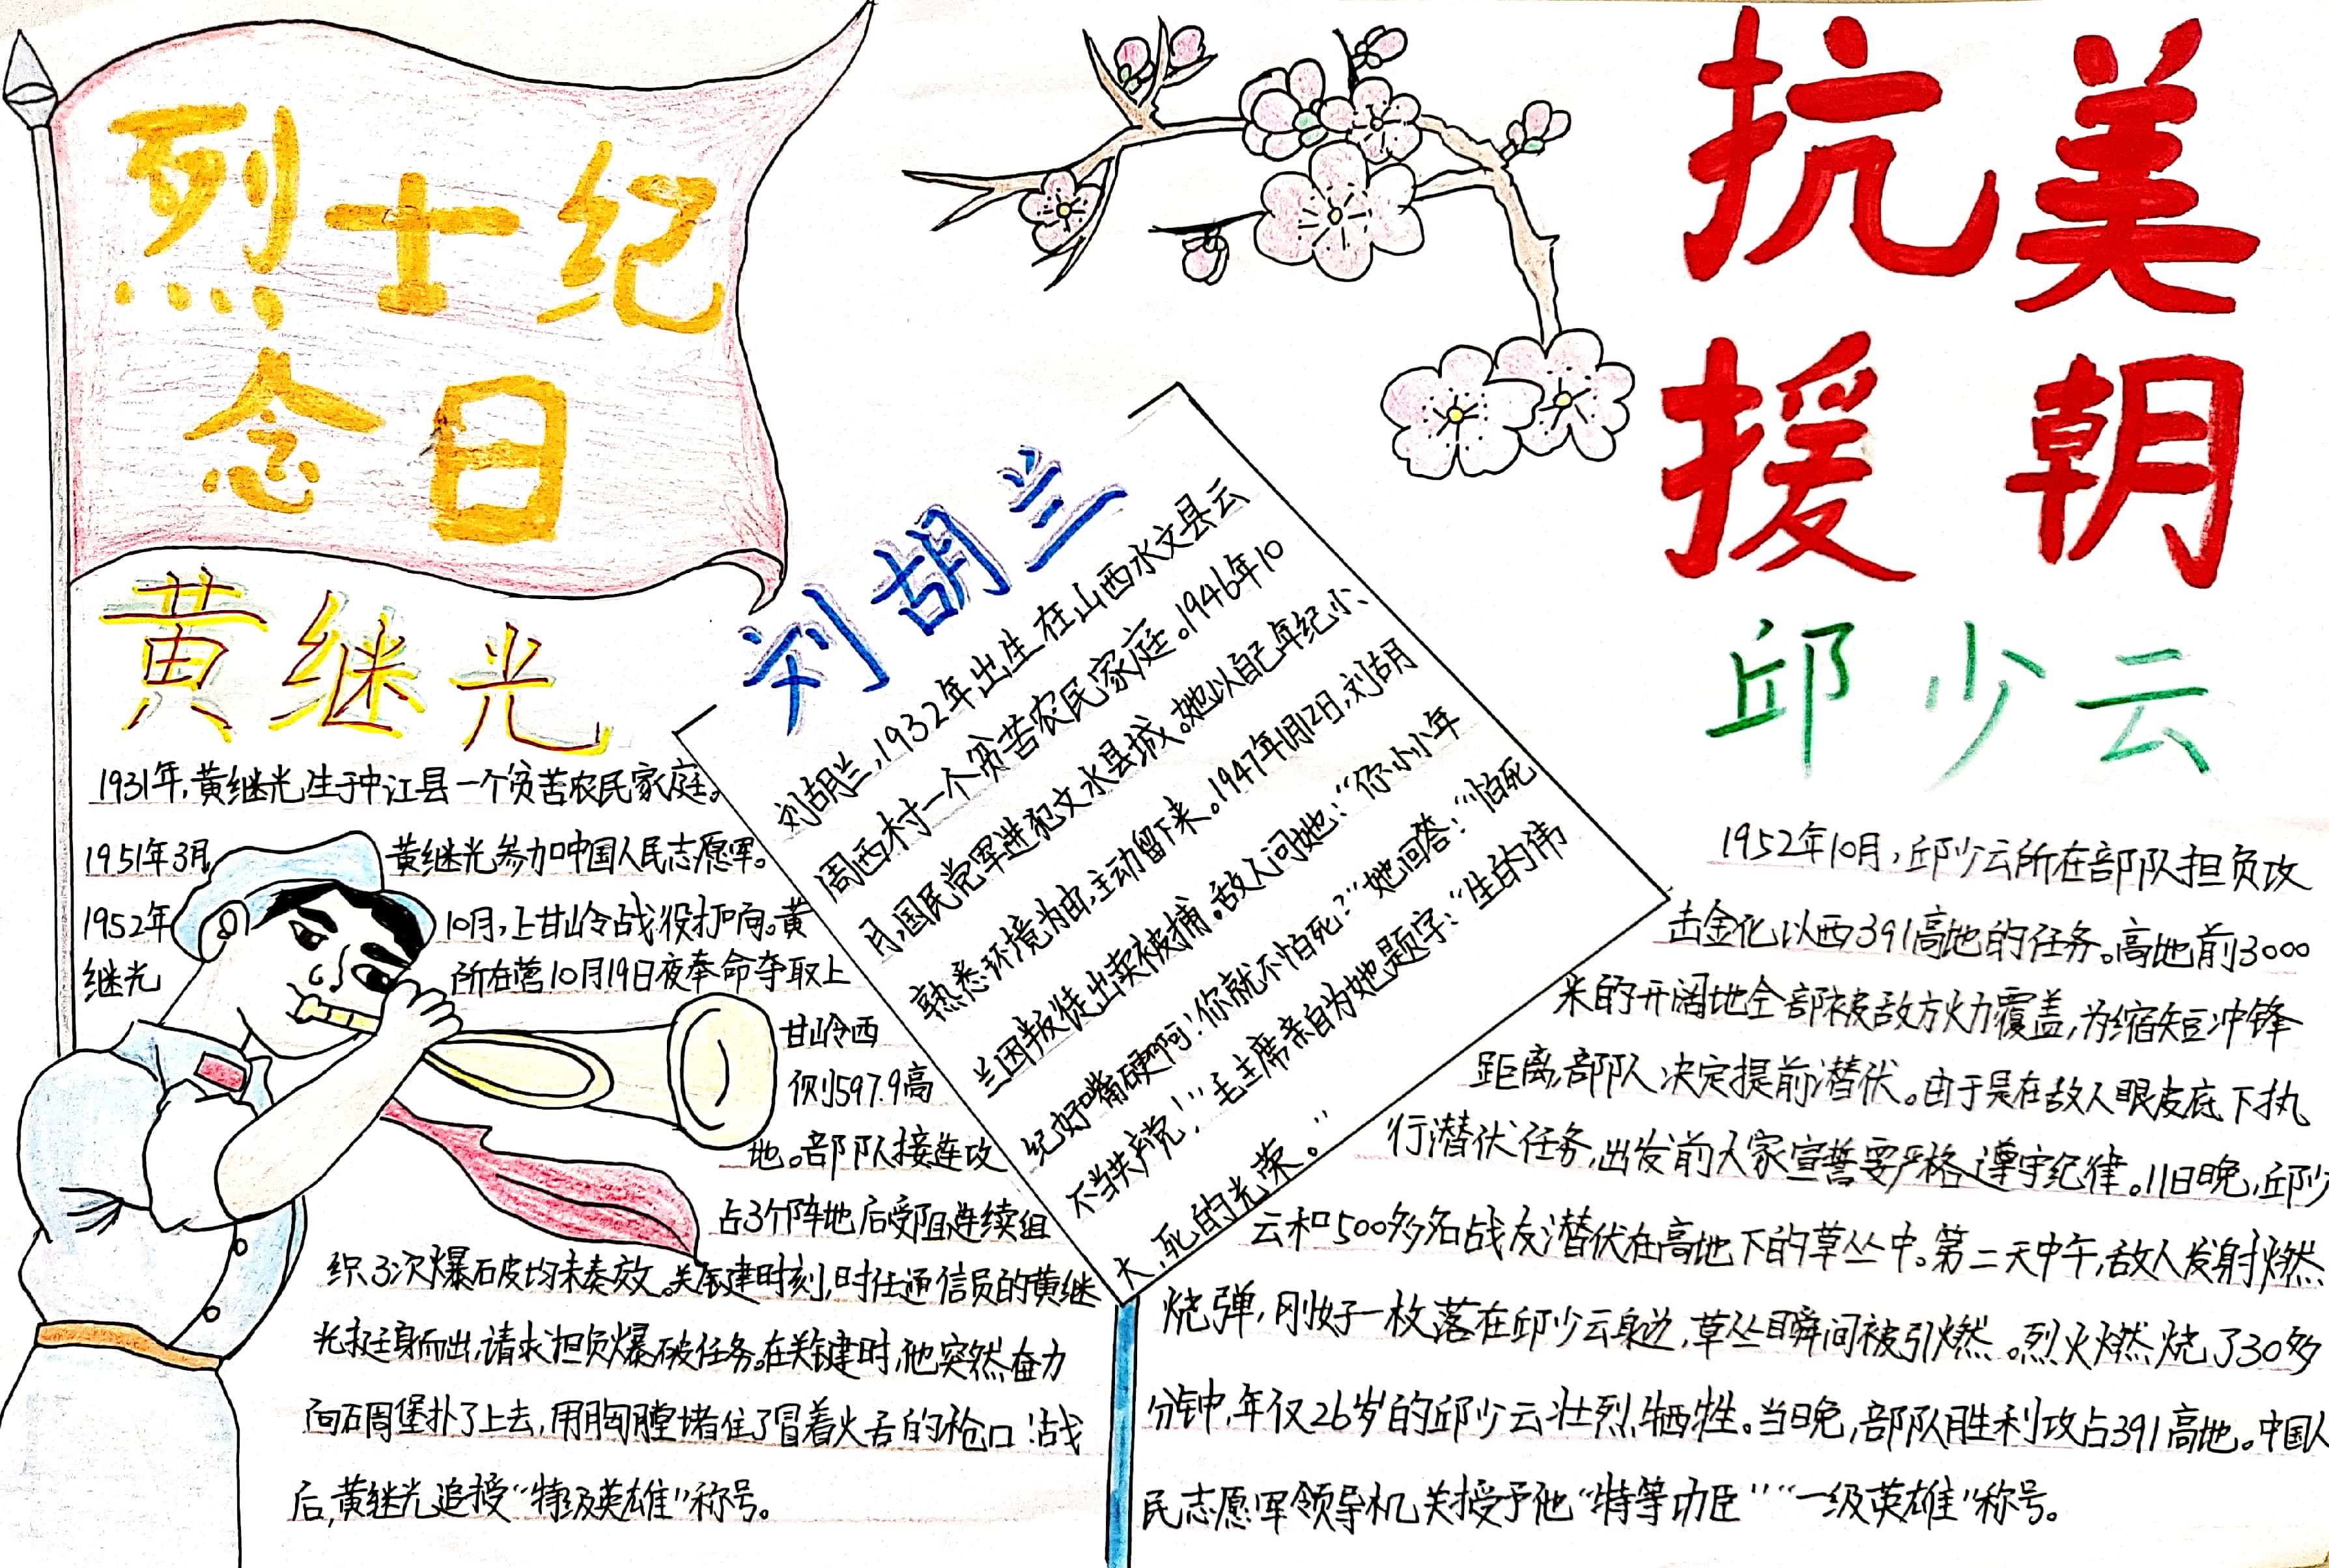 烈士纪
念日
黄继光
1931年,黄继光生于中江县一个贫苦农民家庭。
1951年3月 黄继光参加中国人民志愿军。
1952年 10月,上甘岭战役打响。黄
继光 所在营10月19日夜奉命夺取上
甘岭西
侧597.9高
地。部队接连攻
占3个阵地后受阻,连续组
织3次爆破均未奏效。关键时刻,时任通信员的黄继
光挺身而出,请求担负爆破任务。在关键时,他突然奋力
向碉堡扑了上去,用胸膛堵住了冒着火舌的枪口!战
后,黄继光追授“特级英雄”称号。
刘胡兰
刘胡兰,1932年出生在山西水文县云
周西村一个贫苦农民家庭。1946年10
月,国民党军进犯文水县城。她以自己年纪小、
熟悉环境为由,主动留下来。1947年1月12日,刘胡
兰因叛徒出卖被捕。敌人问她:“你小小年
纪好嘴硬啊!你就不怕死?”她回答:“怕死
不当共产党!”毛主席亲自为她题字:“生的伟
大,死的光荣。”
抗美
援朝
邱少云
1952年10月,邱少云所在部队担负攻
击金化以西391高地的任务。高地前3000
米的开阔地全部被敌方火力覆盖,为缩短冲锋
距离,部队决定提前潜伏。由于是在敌人眼皮底下执
行潜伏任务,出发前大家宣誓要严格遵守纪律。11日晚,邱少
云和500多名战友潜伏在高地下的草丛中。第二天中午,敌人发射燃
烧弹,刚好一枚落在邱少云身边,草丛瞬间被引燃。烈火燃烧了30多
分钟,年仅26岁的邱少云壮烈牺牲。当日晚,部队胜利攻占391高地。中国人
民志愿军领导机关授予他“特等功臣”“一级英雄”称号。